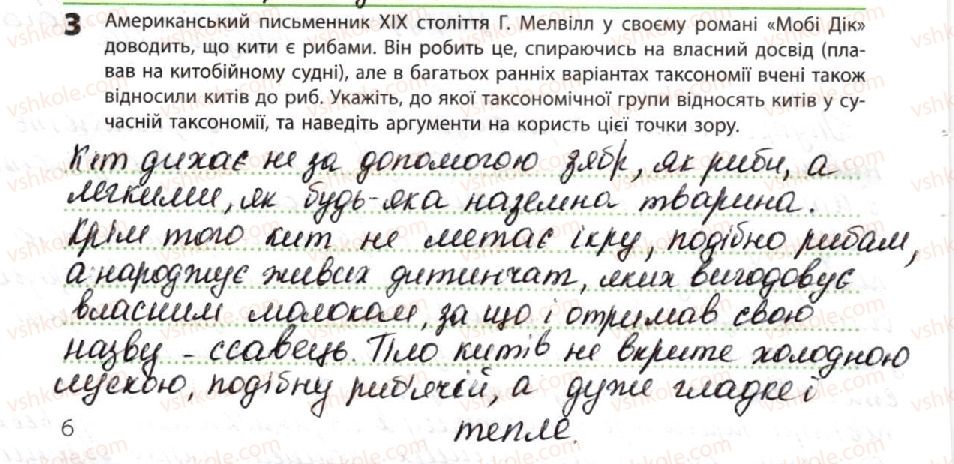 3 Американський письменник XIX століття Г. Мелвілл у своєму романі «Мобі Дік»
доводить, що кити є рибами. Він робить це, спираючись на власний досвід (пла-
вав на китобійному судні), але в багатьох ранніх варіантах таксономії вчені також
відносили китів до риб. Укажіть, до якої таксономічної групи відносять китів у су-
часній таксономії, та наведіть аргументи на користь цієї точки зору.
Кіт дихає не за допомогою зябр, як риби, а
легкими, як будь-яка наземна тварина.
Крім того кит не метає ікру, подібно рибам,
а народжує живих дитинчат, яких вигодовує
власним молоком, за що і отримав свою
назву - ссавець. Тіло китів не вкрите холодною
лускою, подібну риб'ячій, а дуже гладке і
6 тепле.
vshkole.com